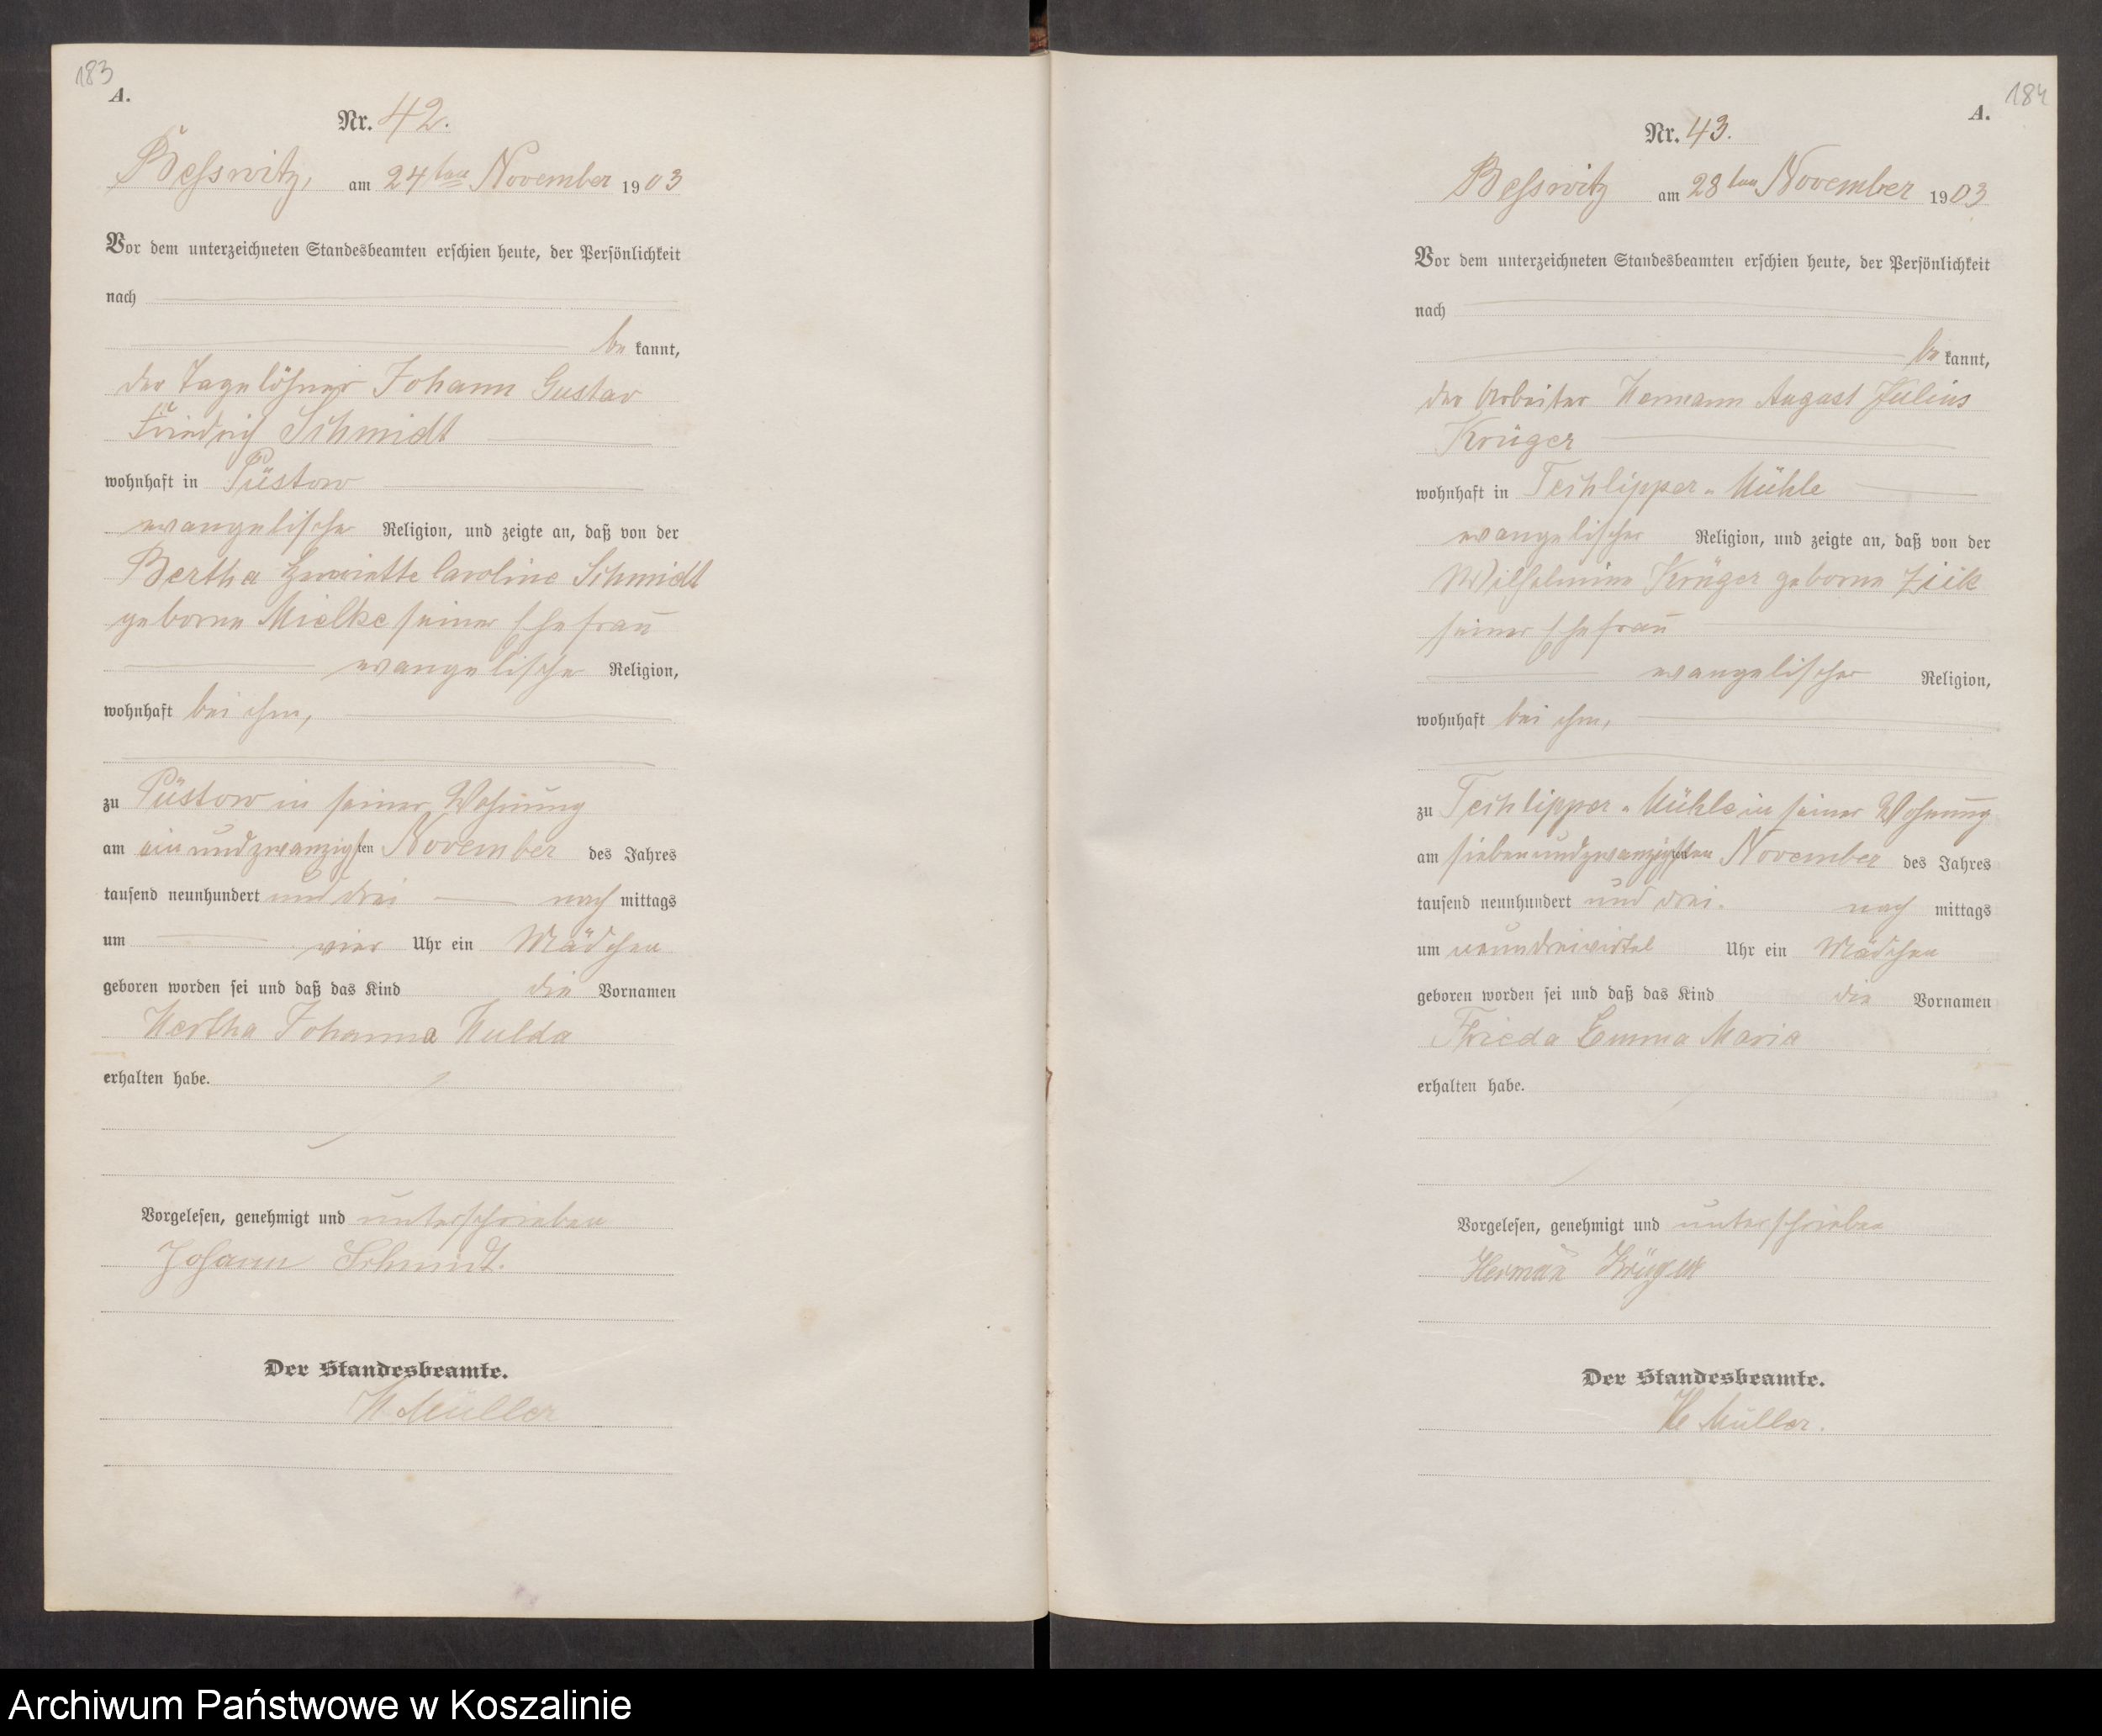 183
A.
Nr. 42.
Beßwitz, am 24ten November 1903
Vor dem unterzeichneten Standesbeamten erschien heute, der Persönlichkeit
nach
be kannt,
der Tagelöhner Johann Gustav
Friedrich Schmidt
wohnhaft in Püstow
evangelischer Religion, und zeigte an, daß von der
Bertha Henriette Caroline Schmidt
geborne Mielke seiner Ehefrau
evangelische Religion,
wohnhaft bei ihm,
zu Püstow in seiner Wohnung
am einundzwanzigsten November des Jahres
tausend neunhundert und drei nach mittags
um vier Uhr ein Mädchen
geboren worden sei und daß das Kind die Vornamen
Hertha Johanna Hulda
erhalten habe.
Vorgelesen, genehmigt und unterschrieben
Johann Schmidt.
Der Standesbeamte.
H Müller
184
A.
Nr. 43.
Beßwitz am 28ten November 1903
Vor dem unterzeichneten Standesbeamten erschien heute, der Persönlichkeit
nach
be kannt,
der Arbeiter Hermann August Julius
Krüger
wohnhaft in Techlipper-Mühle
evangelischer Religion, und zeigte an, daß von der
Wilhelmine Krüger geborne
seiner Ehefrau
evangelischer Religion,
wohnhaft bei ihm,
zu Techlipper-Mühle in seiner Wohnung
am siebenundzwanzigsten November des Jahres
tausend neunhundert und drei. nach mittags
um neundreivirtel Uhr ein Mädchen
geboren worden sei und daß das Kind die Vornamen
Frieda Emma Maria
erhalten habe.
Vorgelesen, genehmigt und unterschrieben
Herman Krüger
Der Standesbeamte.
H Müller.
Archiwum Państwowe w Koszalinie